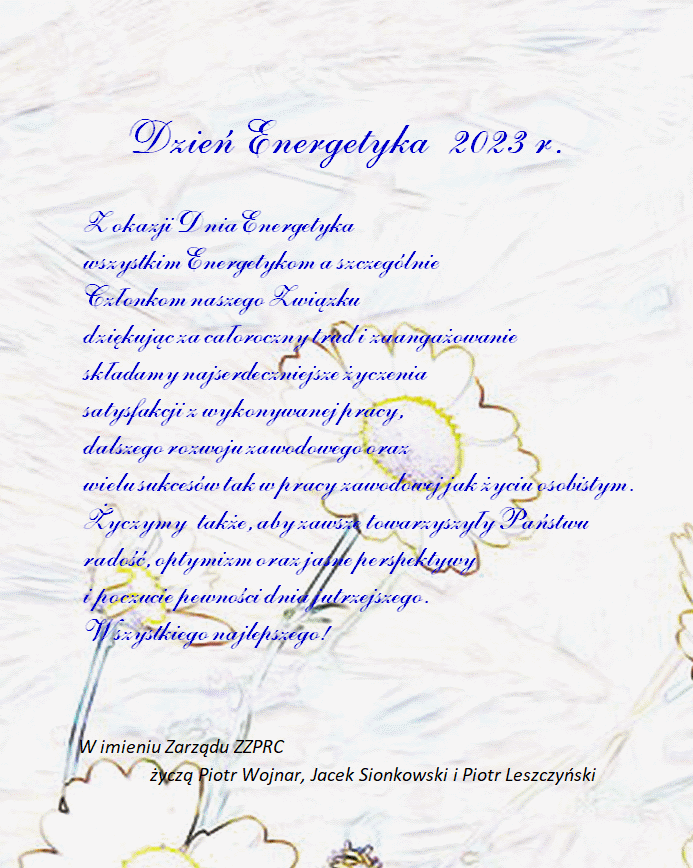 Dzień Energetyka 2023 r.
Z okazji Dnia Energetyka
wszystkim Energetykom a szczególnie
Członkom naszego Związku
dziękując za całoroczny trud i zaangażowanie
składamy najserdeczniejsze życzenia
satysfakcji z wykonywanej pracy,
dalszego rozwoju zawodowego oraz
wielu sukcesów tak w pracy zawodowej jak życiu osobistym.
Życzymy także, aby zawsze towarzyszyły Państwu
radość, optymizm oraz jasne perspektywy
i poczucie pewności dnia jutrzejszego.
Wszystkiego najlepszego!
W imieniu Zarządu ZZPRC
życzą Piotr Wojnar, Jacek Sionkowski i Piotr Leszczyński